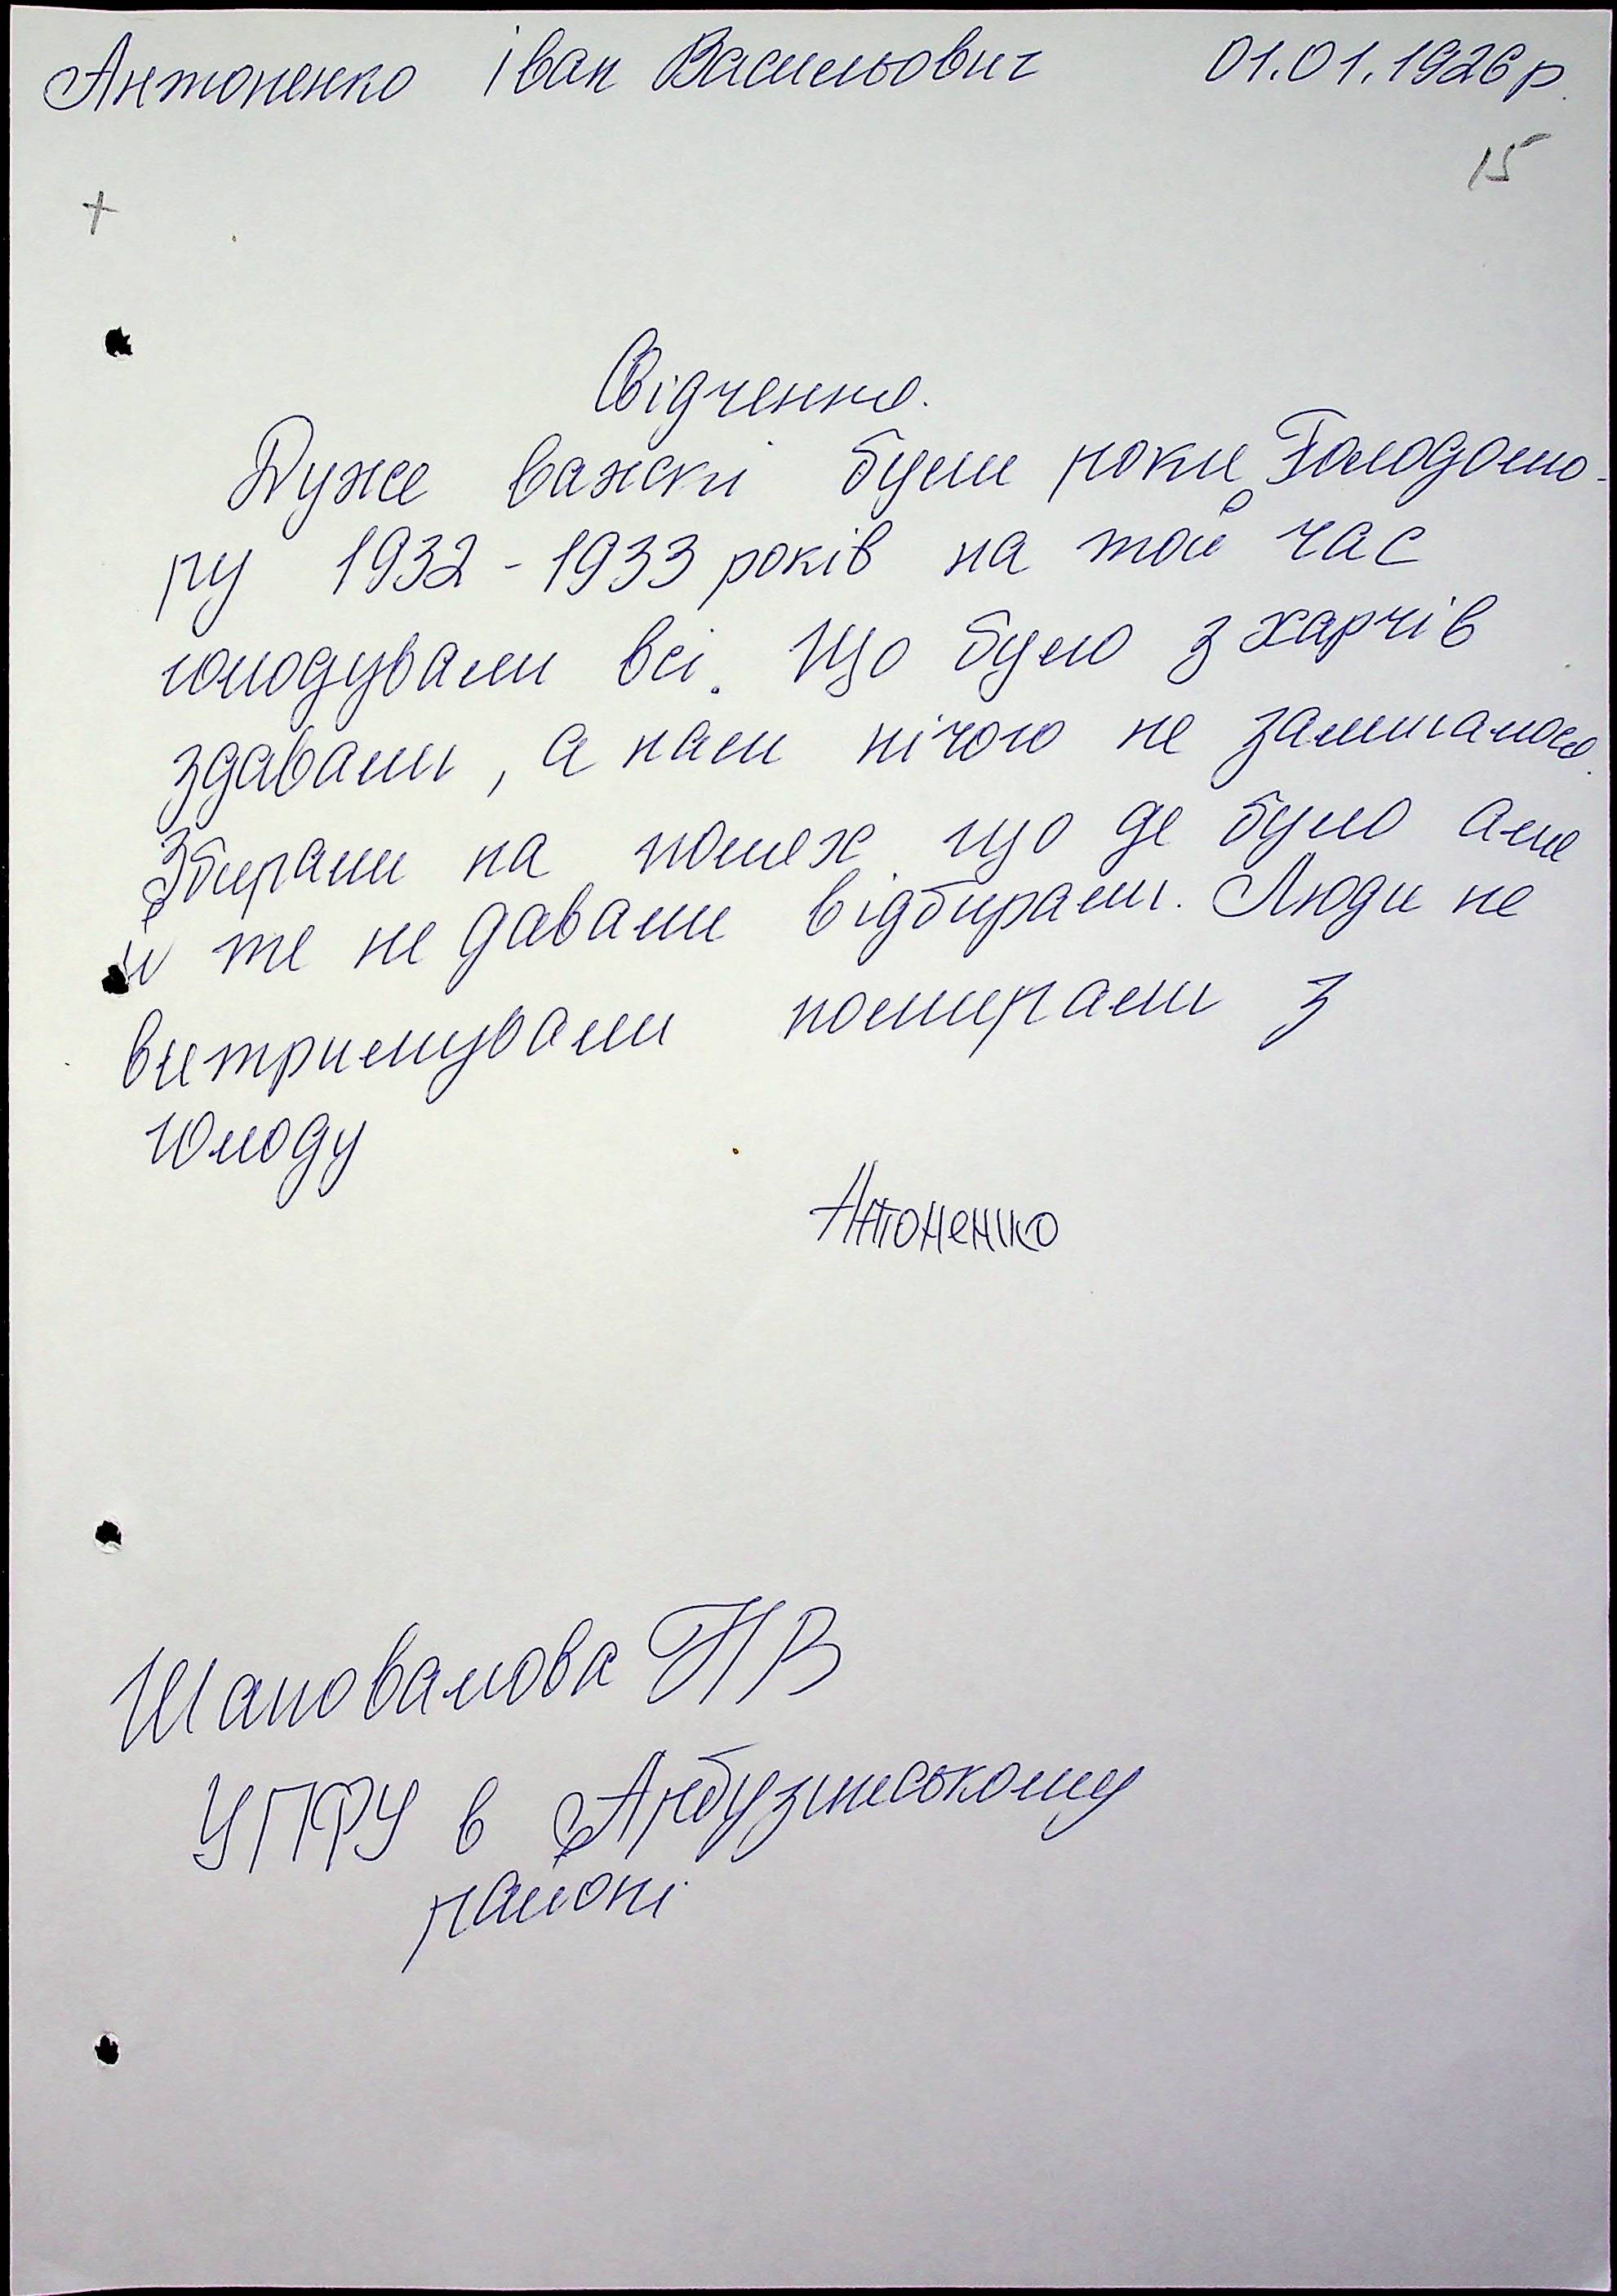 Антоненко Іван Васильович 01.01.1926р.
15
+
Свідчення.
Дуже важкі були роки Голодомо-
ру 1932-1933 років на той час
голодували всі. Що було з харчів
здавали, а нам нічого не залишалося.
Збирали на полях що де було але
й те не давали відбирали. Люди не
витримували помирали з
голоду
Антоненко
Шаповалова НВ
УПФУ в Арбузинському
районі